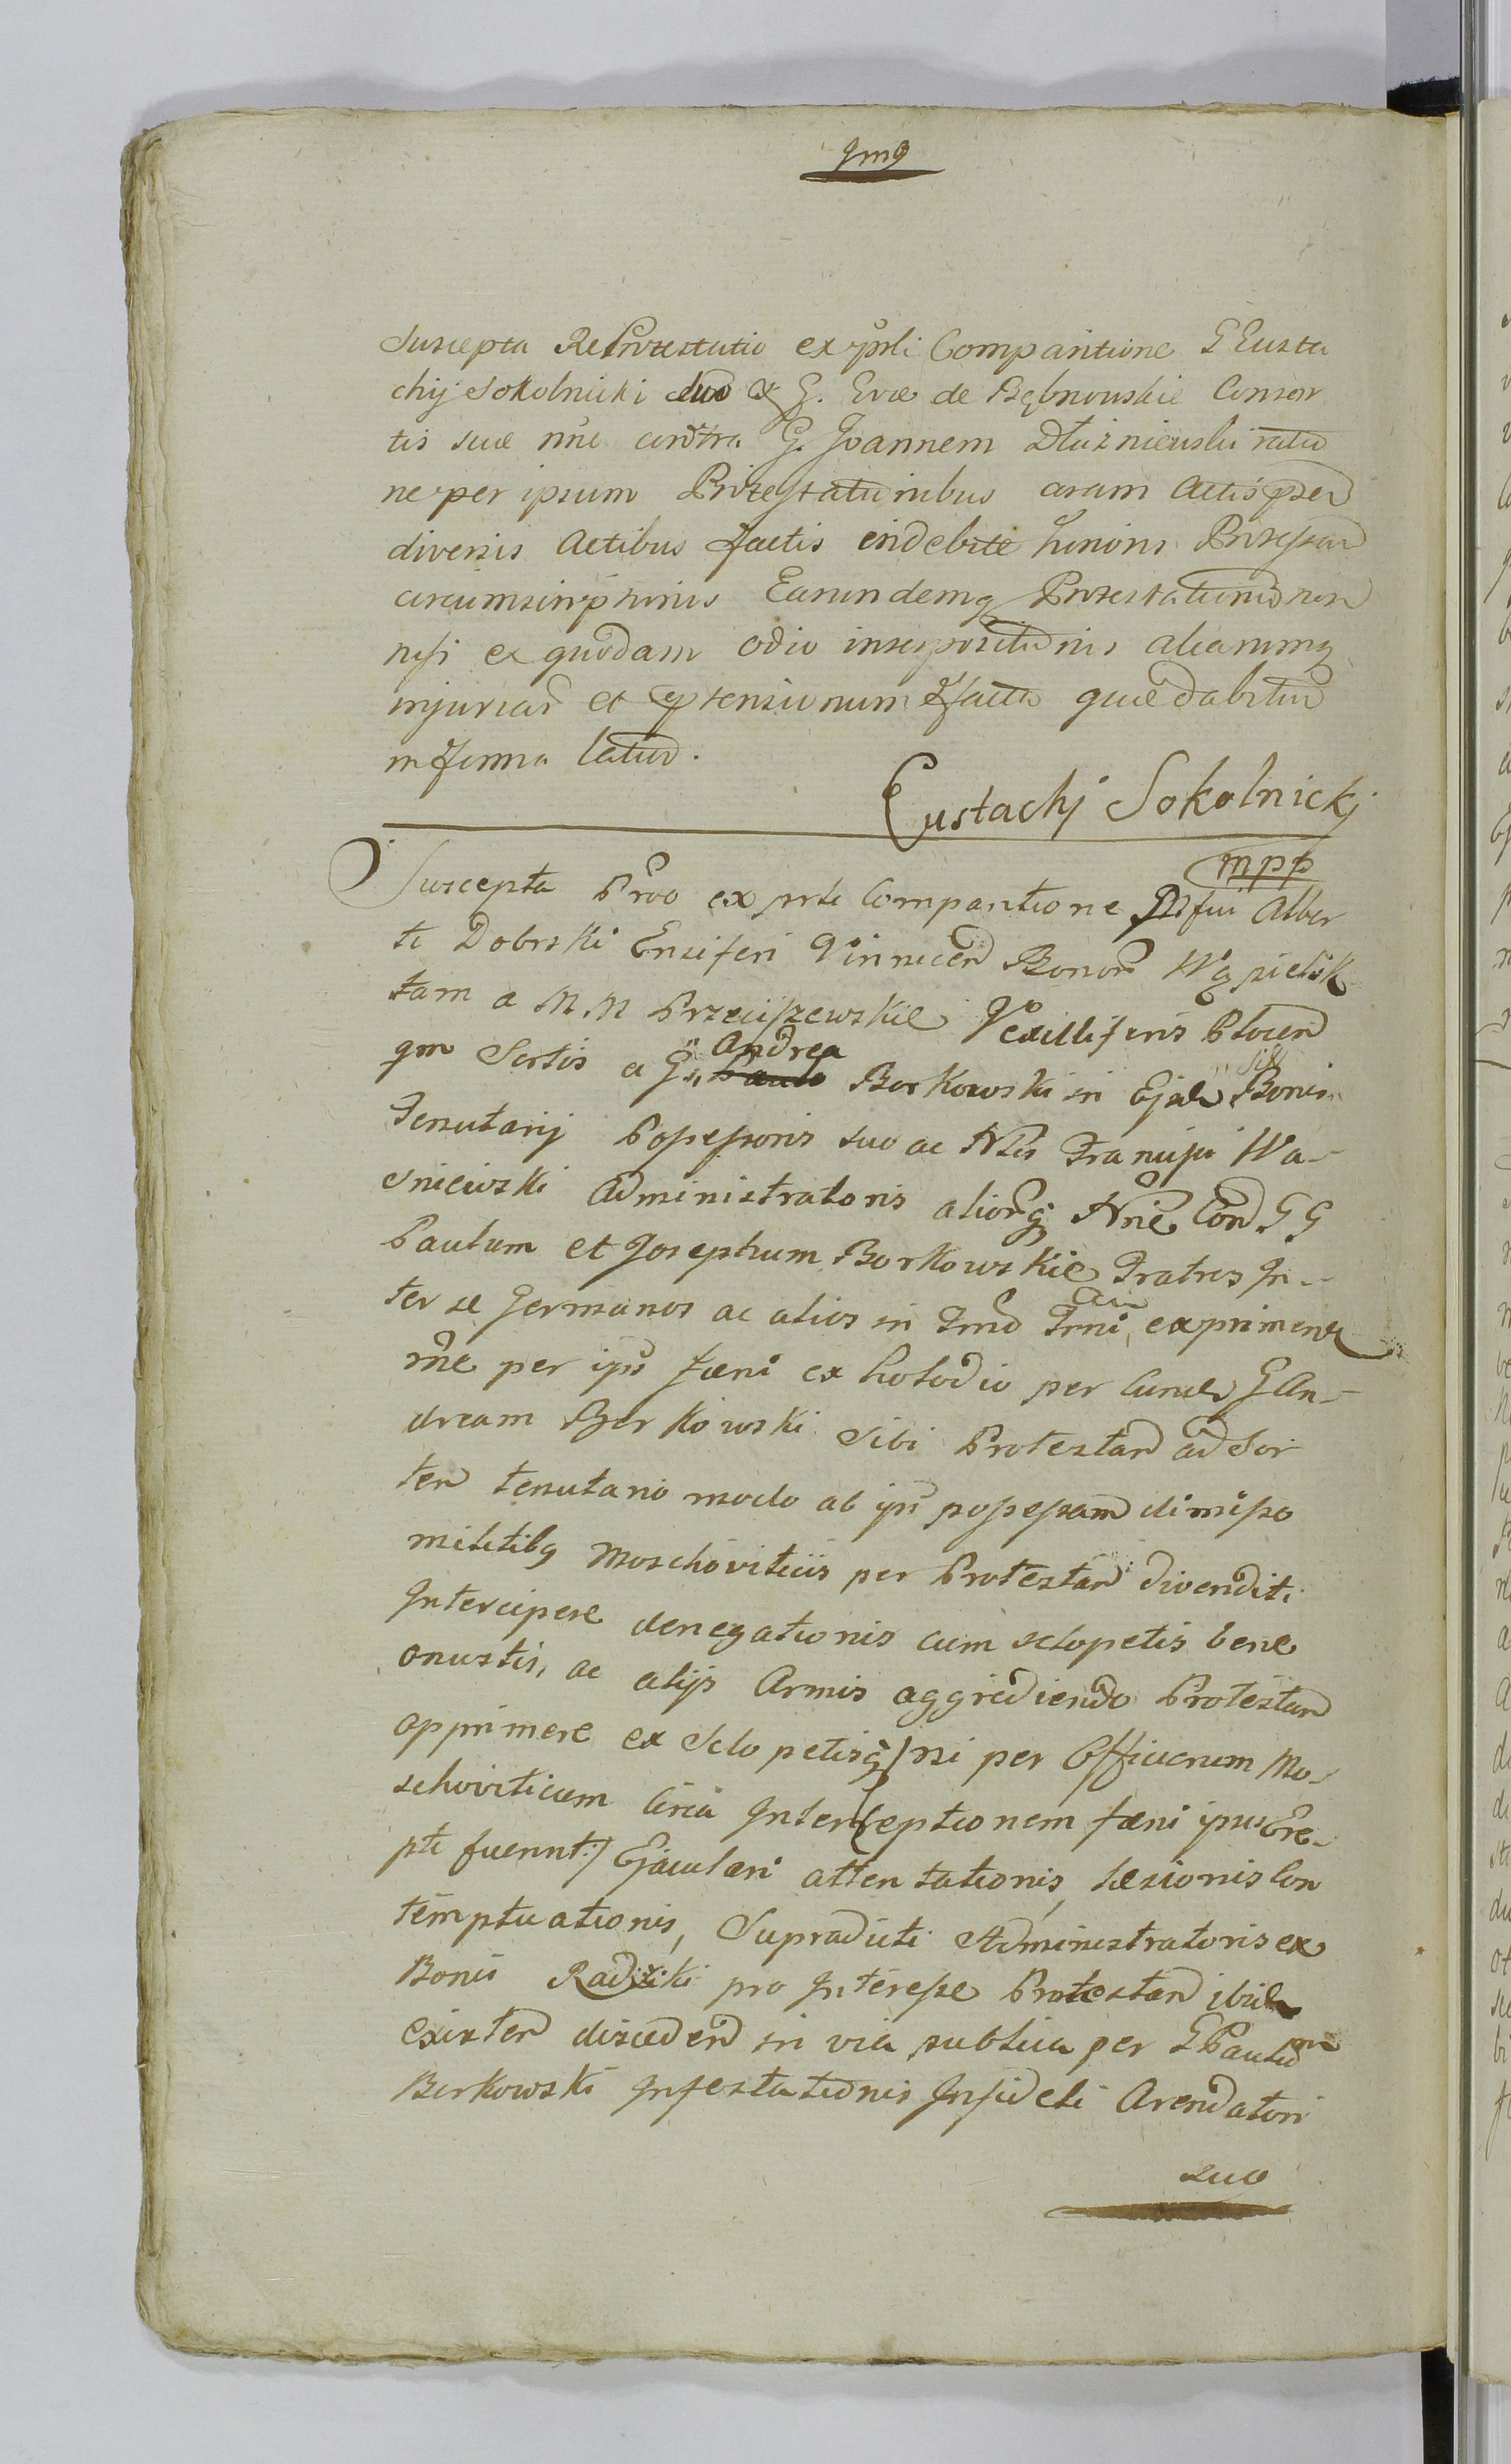 qmq
Suscepta Reprotestatio ex psli Comparitione G Eusta
chij Sokolnicki suo & G. Evæ de Bębnowskie Consor
tis suæ nne contra G. Joannem Dłuzniewski ratio
ne per ipsum Protestationibus coram Actis pset
diversis Actibus factis indebite honoris Protestan
circumscriptionis Earundemq Protestationum non
nisi ex quodam odio interpositionis aliarumq
injuriar et prætensionum facta quæ dabitur
in forma latior.
Eustachj Sokolnickj
mpp
Suscepta Prœo ex prti Comparitione Msfici Alber
ti Dobrski Ensiferi Vinnicen Bonor Wąpielsk
tam a M M Przeciszewskie Vexilliferis Plocen
qm Sortis a G. Andrea Borkowski in Ejsd Bonis
Tenutarij Possessoris suo ac Nlis Francisci Wa-
sniewski Administratoris aliorq Nnie Con G G
Paulum et Josephum Borkowskie Fratres In-
ter se Germanos ac alios in Tmo Trni exprimend
rne per ips fœni ex holodio per eund G An-
dream Borkowski Sibi Protestan ad Sor
tem tenutario modo ab ips possessam dimisso
militibq Moschoviticis per Protestan divenditi
Intercipere denegationis cum sclopetis bene
onustis, ac alijs Armis aggrediendo Protestan
opprimere ex Sclopetisq /: ni per Officierum Mo-
schoviticum circa Interceptionem fæni ipsus Ere-
pti fuerint :/ Ejaculari attentationis, læsionis Con
temptuationis, Supradicti Administratoris ex
Bonis Radziki pro Interesse Protestan ibid
existen disceden in via publica per G Paulum
Borkowski Infestationis Infideli Arendatori
suo